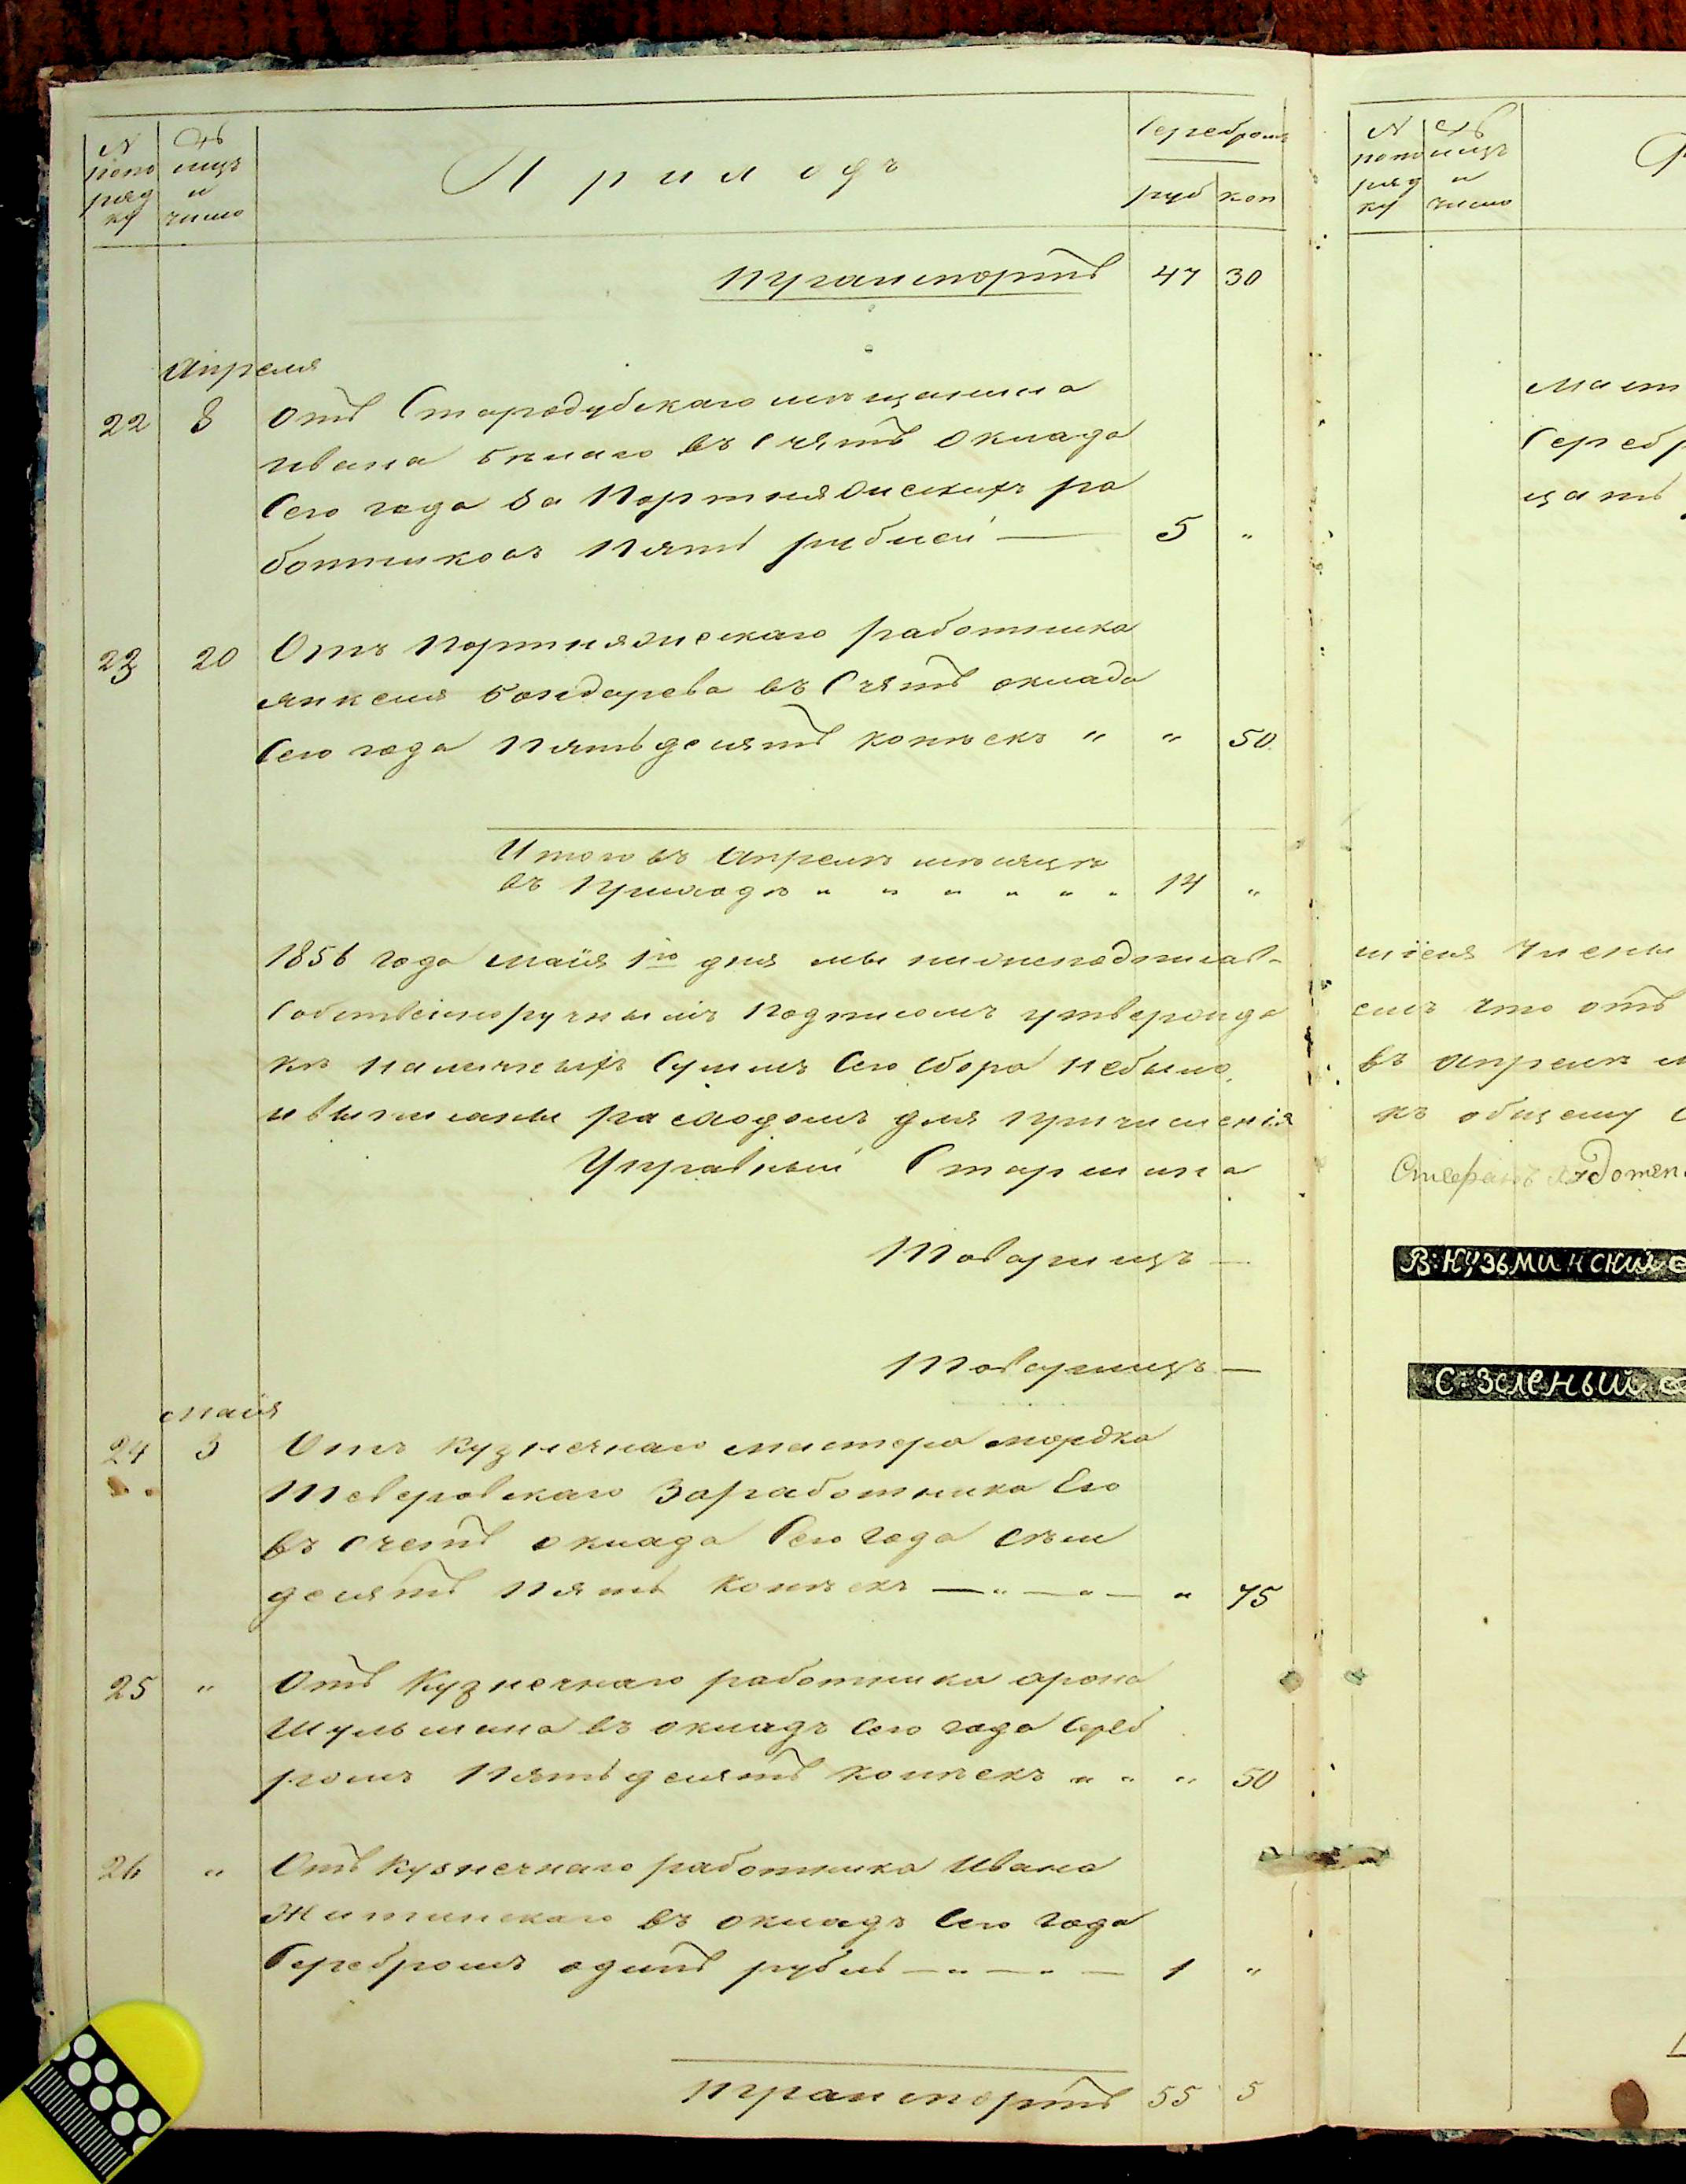 N
по по
ряд
ку
мць
и
число
Приходъ
Серебромъ
руб коп
Транспортъ 47 30
Апреля
22 8 Отъ Стародубскаго мещанина
Ивана Белаго въ Счятъ Оклада
Сего года За Портняжскихъ ра
ботниковъ Пять рублей — 5 „
23 20 Отъ Портняжскаго работника
Янкеля Бондарева въ Счятъ оклада
Сего года Пятьдесятъ копѣекъ „ „ 50
Итого въ Апрелѣ мѣсяцѣ
въ Приходѣ „ „ „ „ „ „ 14 „
1856 года Маія 1го дня мы нижеподписав-
Собственноручнымъ Подписомъ утвержда
кѣ Наличныхъ Суммъ Сего Сбора Небыло
и выписаны расходомъ для Причисленія
Управный Старшина
Товарищъ —
Товарищъ —
Маія
24 3 Отъ Кузнечнаго мастера Мордка
Теверовскаго За работника Его
въ Счетъ оклада Сего года Сѣм
десятъ Пять Копѣекъ — „ — „ — „ 75
25 „ Отъ Кузнечнаго работника Арона
Шульмана въ окладъ Сего года Сереб
ромъ Пятьдесятъ Копѣекъ „ „ „ 50
26 „ Отъ Кузнечнаго работника Ивана
Житинскаго въ окладъ Сего года
Серебромъ одинъ рубль — „ — „ — 1 „
Транспортъ 55 5
N
по по
ряд
ку
мць
и
число
Р
Маст
Сереб
цать
шіеся Члены
емъ что отъ
въ Апрелѣ м
къ общему С
В: КУЗЬМИНСКИЙ
С-ЗЕЛЕНЫЙ